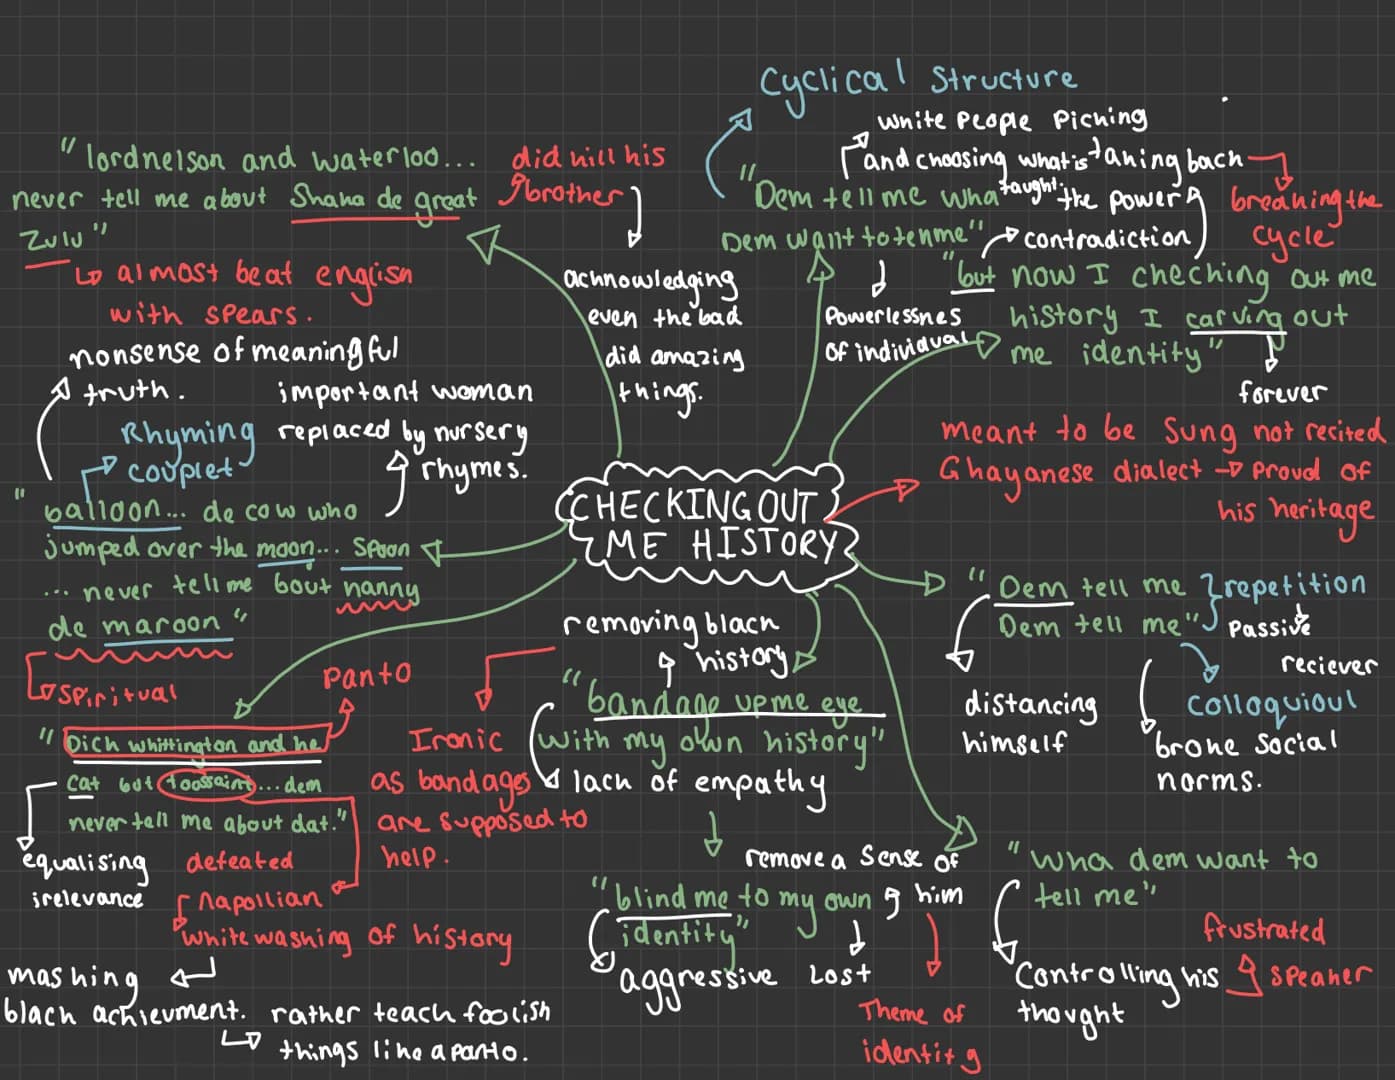 Cyclical Structure
white people picking
and choosing what is
taught.
taking back
the power
breaking the
cycle
"Dem tell me wha
Dem want to tell me"
contradiction
Powerlessnes
of individual
"but now I checking out me
history I carving out
me identity"
forever
"lordnelson and waterloo...
never tell me about Shaka de great
Zulu"
did kill his
brother
acknowledging
even the bad
did amazing
things.
almost beat english
with spears.
nonsense of meaningful
truth.
Rhyming
couplet
important woman
replaced by nursery
rhymes.
"balloon... de cow who
jumped over the moon... spoon
... never tell me bout nanny
de maroon"
spiritual
CHECKING OUT
ME HISTORY
meant to be sung not recited
Ghayanese dialect → proud of
his heritage
"Dem tell me
Dem tell me"
repetition
Passive
reciever
colloquioul
distancing
himself
broke social
norms.
panto
"Dick whittington and he
cat but toossaint... dem
never tell me about dat."
equalising
irelevance
defeated
Napollian
whitewashing of history
masking
black achievment.
rather teach foolish
things like a panto.
removing black
history
"bandage up me eye
with my own history"
lack of empathy
Ironic
as bandages
are supposed to
help.
"blind me to my own
identity"
aggressive
Lost
remove a sense of
him
Theme of
identity
"Wha dem want to
tell me"
Controlling his
thought
frustrated
speaker